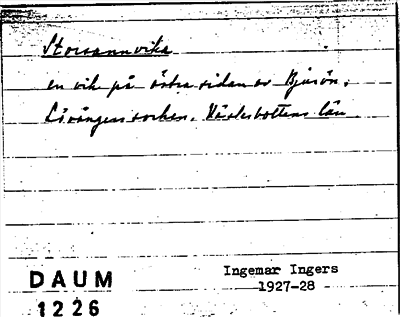 Storsannvika
en vik på östra sidan av Bjurön,
Lövångers socken. Västerbottens län
Ingemar Ingers
DAUM
1927-28
1226